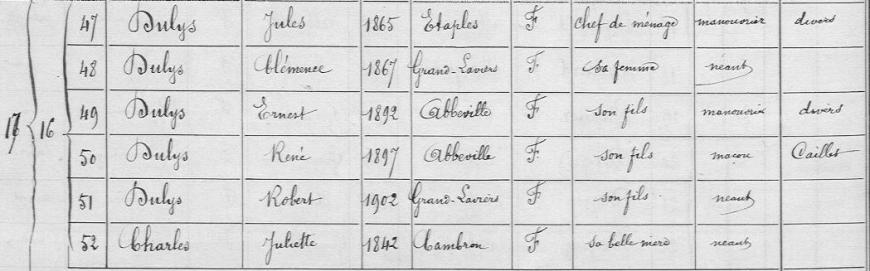 47 Dulys Jules 1865 Etaples F chef de ménage manouvrier divers
48 Dulys Clémence 1867 Grand-Laviers F. sa femme néant
17 16 49 Dulys Ernest 1892 Abbeville F son fils manouvrier divers
50 Dulys René 1897 Abbeville F. son fils maçon Caillet
51 Dulys Robert 1902 Grand-Laviers F son fils. néant
52 Charles Juliette 1842 Cambron F sa belle mère néant